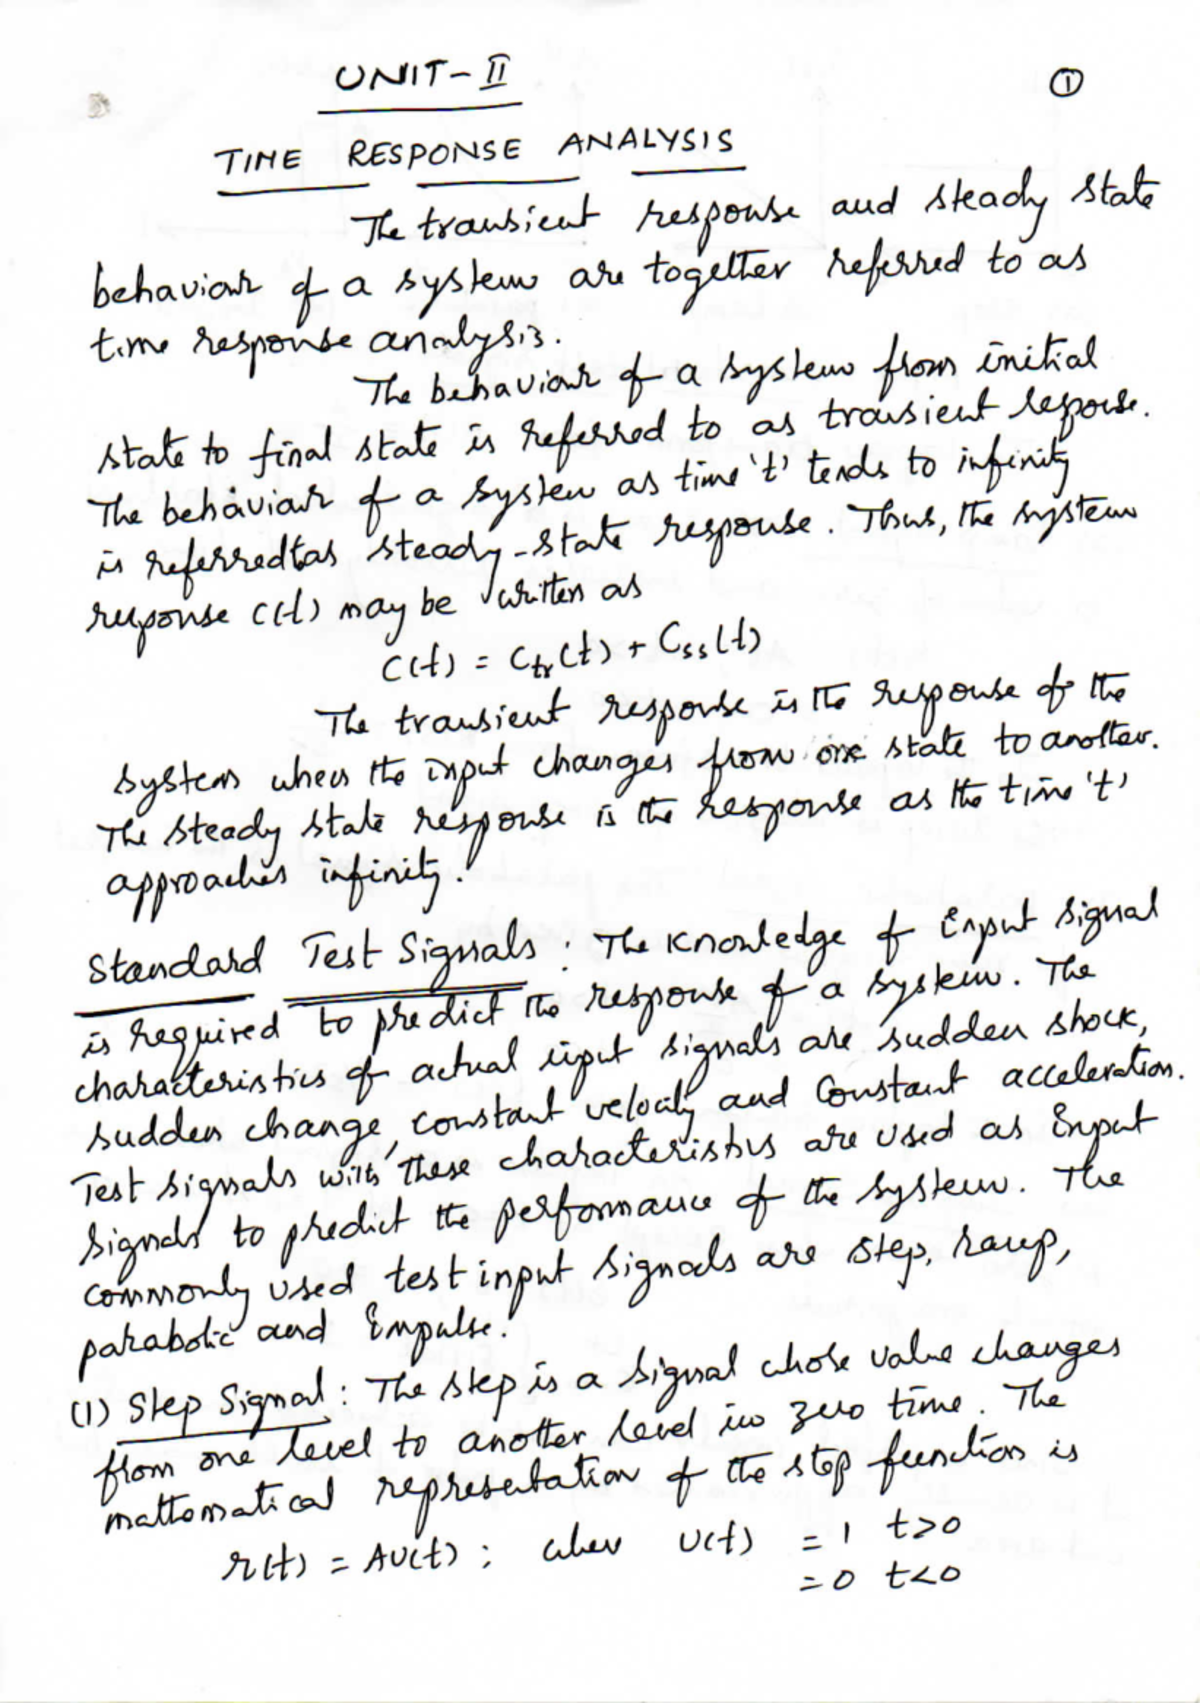 UNIT-II
①
TIME RESPONSE ANALYSIS
The transient response and steady state
behaviour of a system are together referred to as
time response analysis.
The behaviour of a system from initial
state to final state is referred to as transient respose.
The behaviour of a system as time 't' tends to infinity
is referred to as steady-state response. Thus, the system
response c(t) may be written as
C(t) = Ctr(t) + Css(t)
The transient response is the response of the
system when the input changes from one state to another.
The steady state response is the response as the time 't'
approaches infinity.
Standard Test Signals: The knowledge of input signal
is required to predict the response of a system. The
characteristics of actual input signals are sudden shock,
sudden change, constant velocity and constant acceleration.
Test signals with these characteristics are used as input
signals to predict the performance of the system. The
commonly used test input signals are step, ramp,
parabolic and impulse.
(1) Step Signal: The step is a signal whose value changes
from one level to another level in zero time. The
mathematical representation of the step function is
r(t) = AU(t); when U(t) = 1 t>0
= 0 t<0